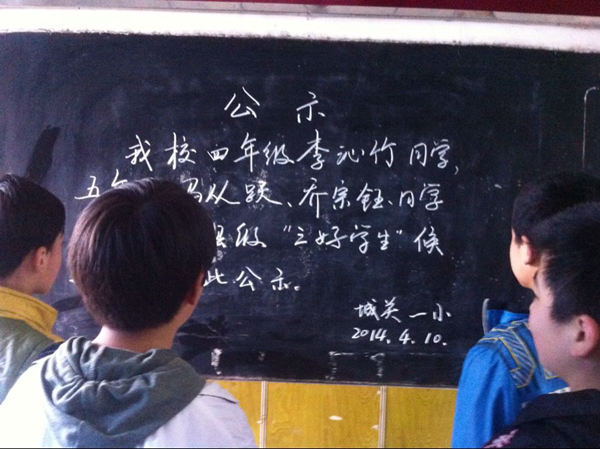 公示
我校四年级李沁竹同学,
五年 马从跃、乔宗钰、同学
县级“三好学生”候
此公示。
城关一小
2014.4.10.